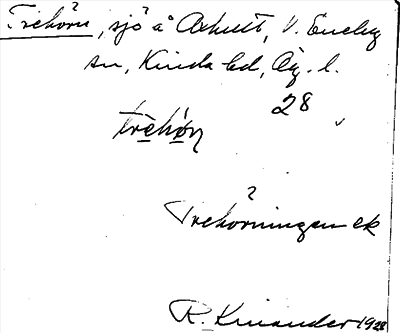 Trehörn, sjö å Askult, V. Eneby
sn, Kinda hd, Ög. l.
28
trèhö̀n
?
Trehörningen ek
R. Kinander 1928